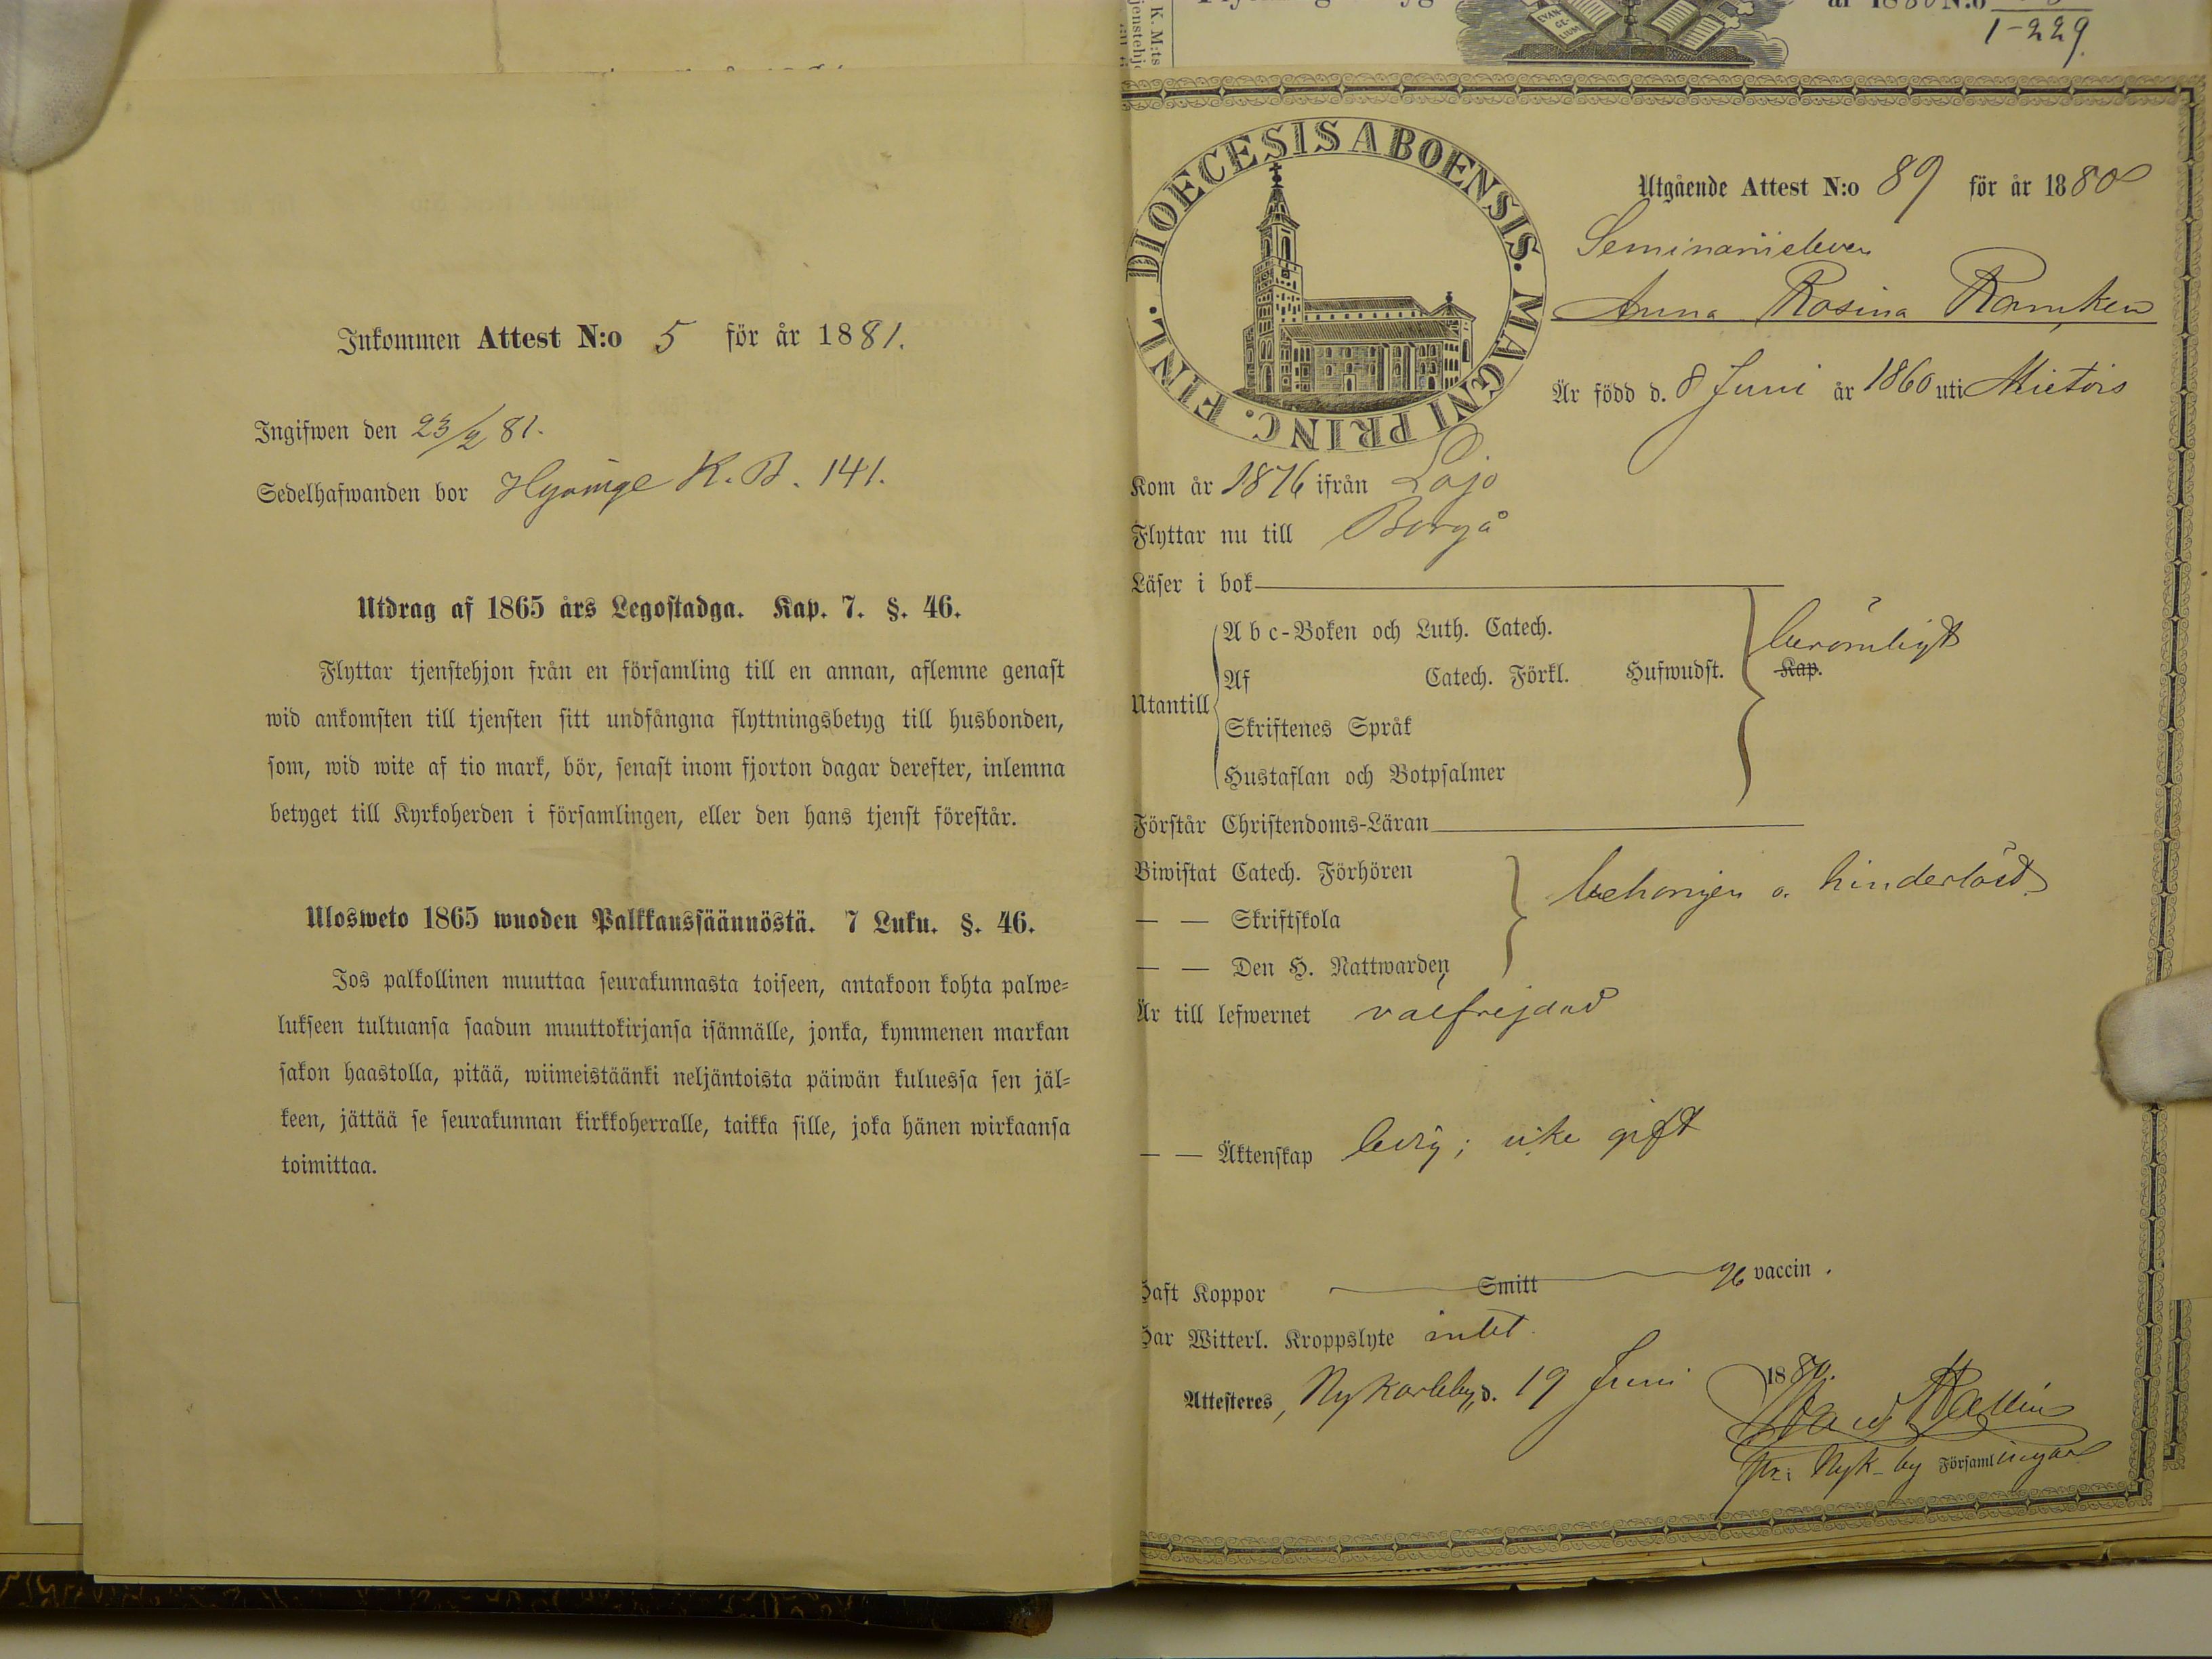 Inkommen Attest N:o 5 för år 1881.
Ingifwen den 23/2 81.
Sedelhafwanden bor Hyvinge K. B. 141.
Utdrag af 1865 års Legostadga. Kap. 7. §. 46.
Flyttar tjenstehjon från en församling till en annan, aflemne genast
wid ankomsten till tjensten sitt undfångna flyttningsbetyg till husbonden,
som, wid wite af tio mark, bör, senast inom fjorton dagar derefter, inlemna
betyget till Kyrkoherden i församlingen, eller den hans tjenst förestår.
Ulosweto 1865 wuoden Palkkaussäännöstä. 7 Luku. §. 46.
Jos palkollinen muuttaa seurakunnasta toiseen, antakoon kohta palwe-
lukseen tultuansa saadun muuttokirjansa isännälle, jonka, kymmenen markan
sakon haastolla, pitää, wiimeistäänki neljäntoista päiwän kuluessa sen jäl-
keen, jättää se seurakunnan kirkkoherralle, taikka sille, joka hänen wirkaansa
toimittaa.
K. M:ts
jenstehj
år 1880 N:o
1-229.
EVAN-
GE-
LIUM
DIOECESIS ABOENSIS. MAGNI PRINC. FINL.
Utgående Attest N:o 89 för år 1880
Seminarieleven
Anna Rosina Ramken
Är född d. 8 Juni år 1860 uti Mietois
Kom år 1876 ifrån Lojo
Flyttar nu till Borgå
Läser i bok
Abc-Boken och Luth. Catech.
berömligt
Utantill
Af Catech. Förkl. Hufwudst. Kap.
Skriftenes Språk
Hustaflan och Botpsalmer
Förstår Christendoms-Läran
Biwistat Catech. Förhören
behörigen o. hinderlöst
— — Skriftskola
— — Den H. Nattwarden
Är till lefwernet välfrejdad
— — Äktenskap ledig; icke gift
Haft Koppor Smitt vaccin.
Har Witterl. Kroppslyte intet.
Attesteres, Nykarleby, d. 19 Juni 1880.
Nyk-by Församlingar